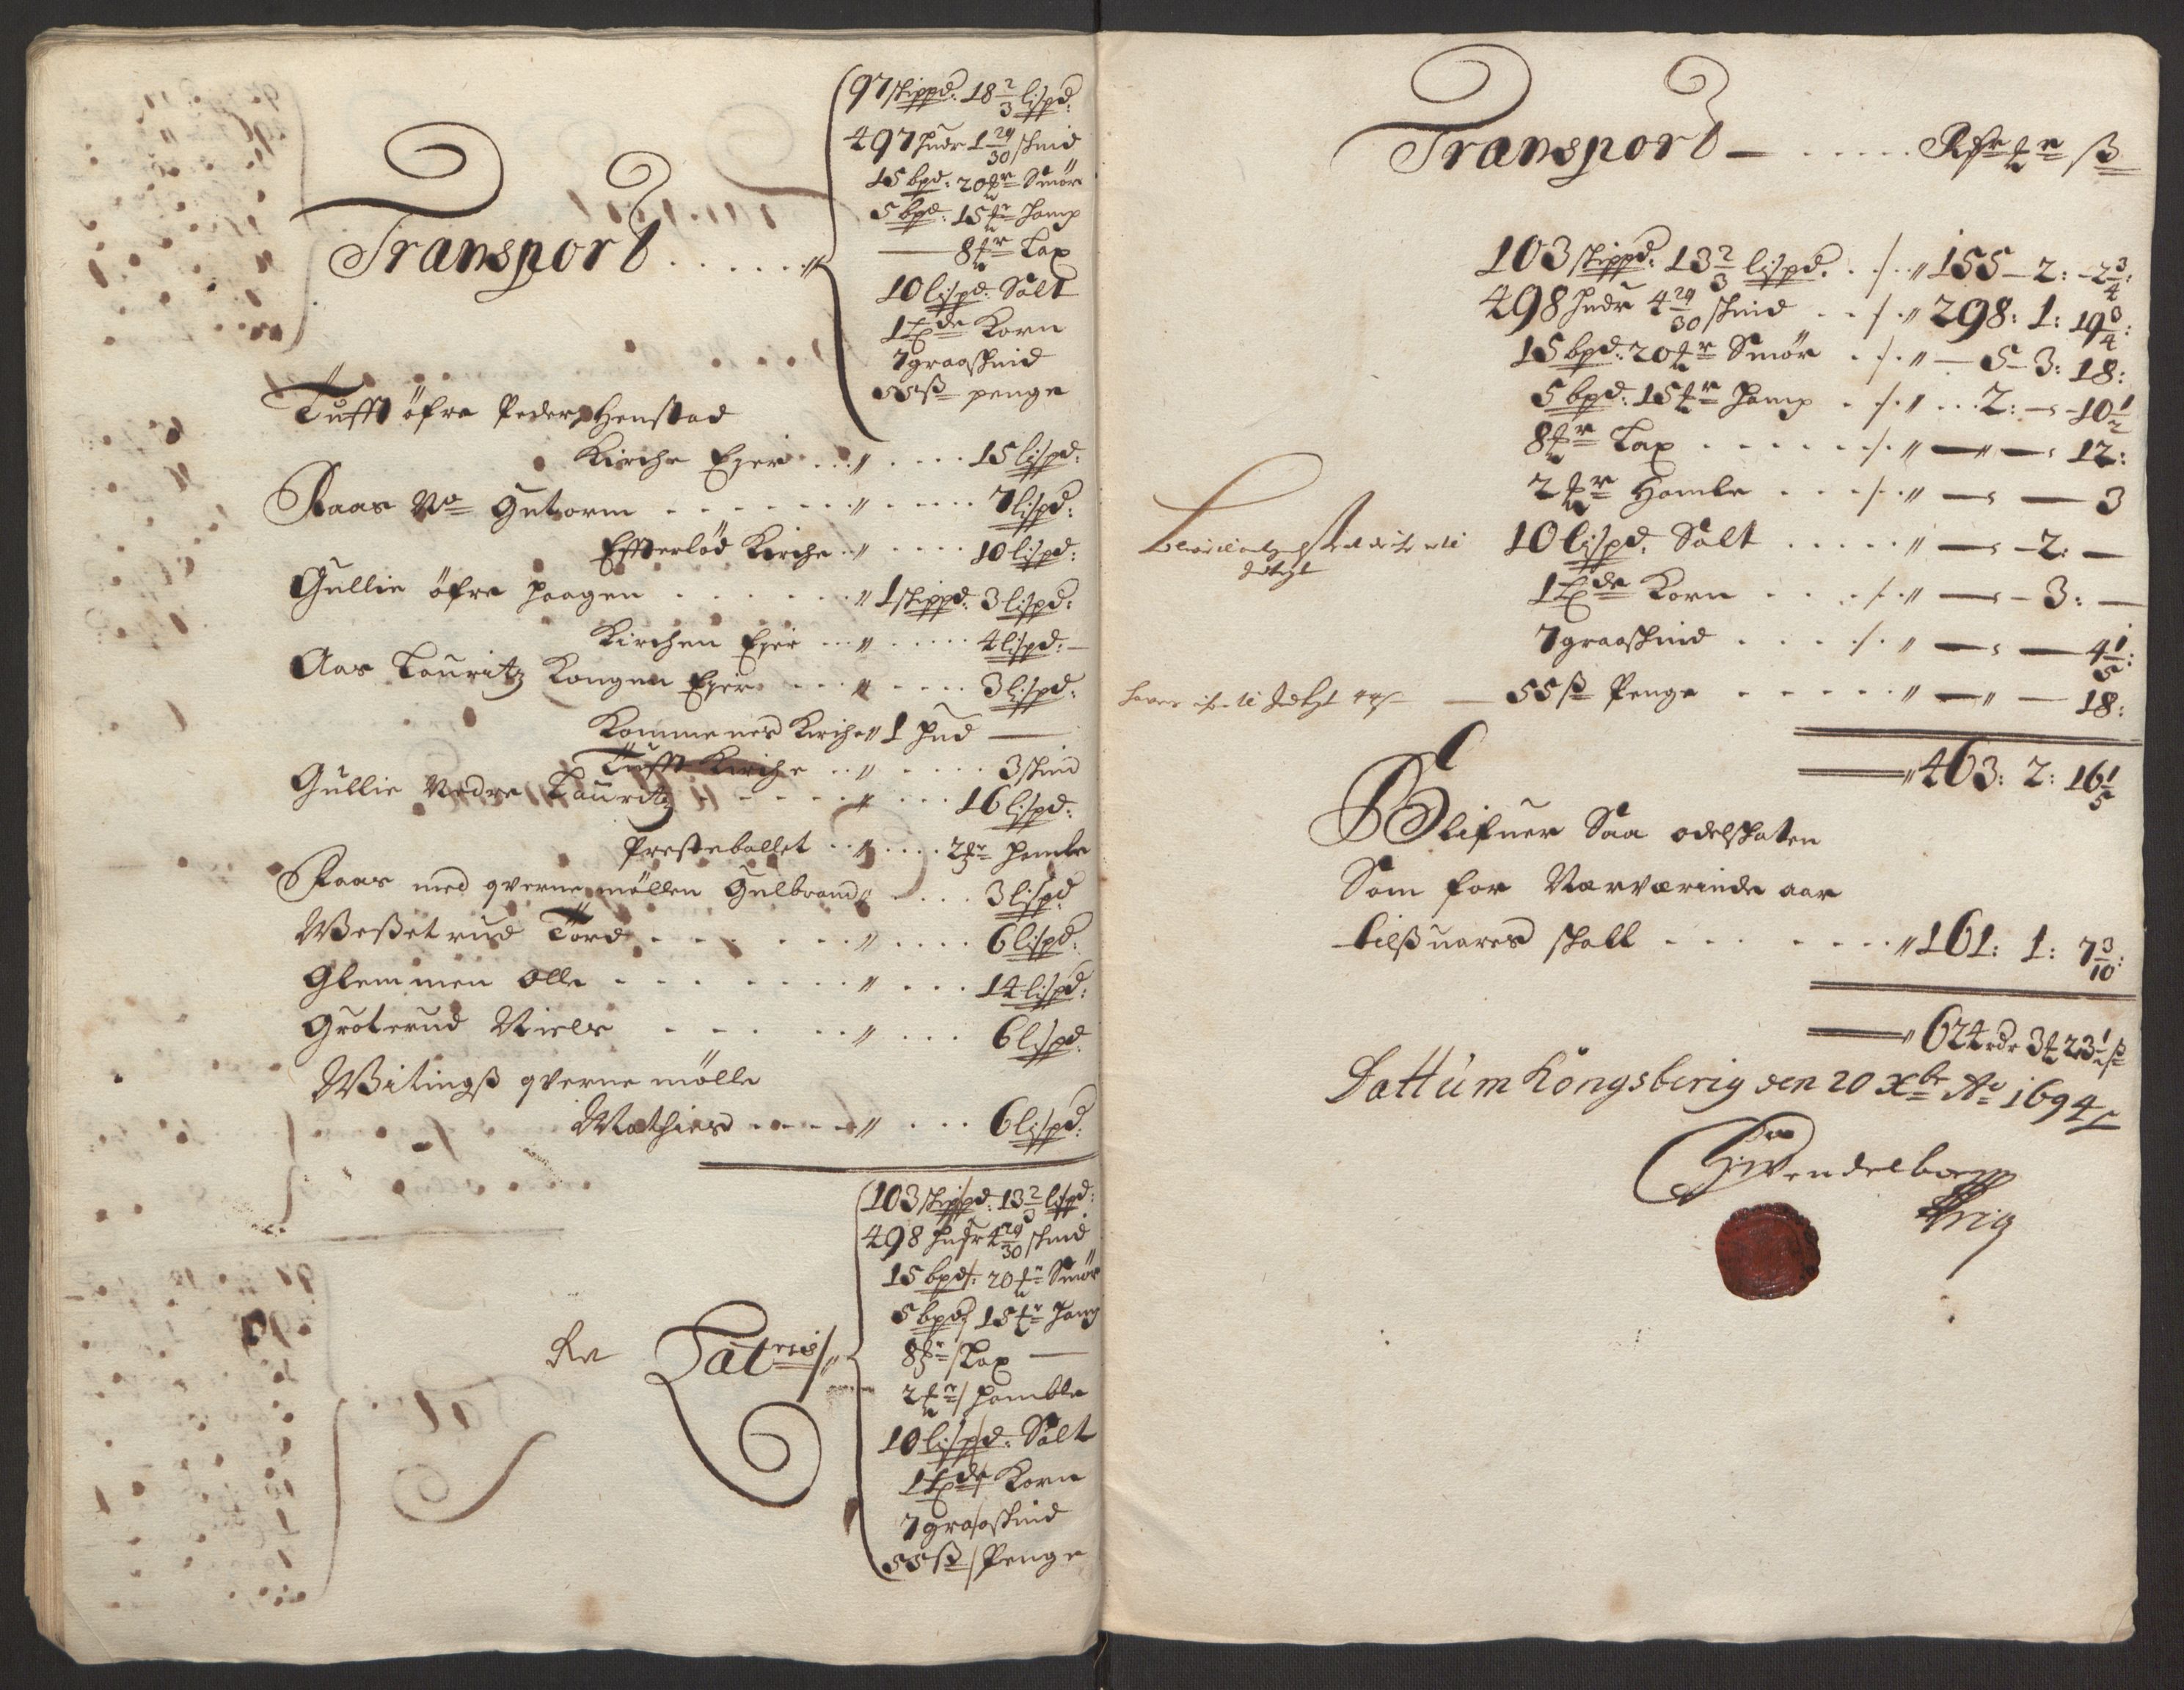 97 skippd: 18 2/3 lispd:
497 hudr 1 29/30 skind
15 bpd: 20 tr Smör
5 bpd: 15 tr Hamp
— 8 tr Lax
Transport . . . . . "
10 lispd: Salt
1 Tde Korn
7 graaskind
55 ß penge
Tufft öfre Peder Henstad
Kirche Ejer . . " . . . . 15 lispd:
Raar No Gutorm . . . . . . . " . . . . . 7 lispd:
Effterlöd Kirche . . " . . . . 10 lispd:
Gullie öfre Haagen . . . . . . " 1 skippd: 3 lispd:
Kirchen Ejer . . . " . . . . . 4 lispd: —
Aas Lauritz Kongen Ejer . . . " . . . . 3 lispd:
Kommenes Kirche " 1 Hud —
Tufft Kirche . . " . . . . . 3 skind
Gullie Nedre Lauritz . . . . . . " . . . 16 lispd:
Prestebollet . . " . . . . 2 tr Homle
Raar med qverne möllen Gulbrand " . . . . 3 lispd:
Weßetrud Tord . . . . . . . " . . . . 6 lispd:
Glemmen Olle . . . . . . . " . . . 14 lispd:
Groterud Niels . . . . . " . . . 6 lispd:
Witingß qverne mölle
Mathies . . . . . " . . . 6 lispd:
103 skippd: 13 2/3 lispd:
498 hudr 4 29/30 skind
15 bpd: 20 tr Smör
5 bpd 15 tr Hamp
Latris
8 tr Lax —
2 tr Homble
10 lispd: Salt
1 Tde Korn
7 graaskind
55 ß Penge
Transport — . . . . . Rdr t ß
103 skippd: 13 2/3 lispd: . ./. " 155 — 2: — 2 3/4:
498 hudr 4 29/30 skind . . ./. " 298: 1: 19 3/4:
15 bpd: 20 tr Smör . ./. " — 5 — 3: 18:
5 bpd: 15 tr Hamp . ./. " . . . 2: — 10 1/2
8 tr Lax . . . . . . ./. " — " — 12:
2 tr Homle . . . ./. " — — 3
10 lispd. Salt . . . . . " — 2: —
1 Tde Korn . . . ./. " — 3: —
7 graaskind . . . . ./. " — — 4 1/5:
— 55 ß Penge . . . . . . " — " — 18:
— " 463: 2: 16 1/5
Blifuer Saa odelskaten
Som for Nærværende aar
tilßuares skall . . . . . . . " 161: 1: 7 3/10:
— " 624 rdr 3 t 23 1/2 ß
Dattum Kongsberig den 20 Xbr Ao 1694
HWendelboe